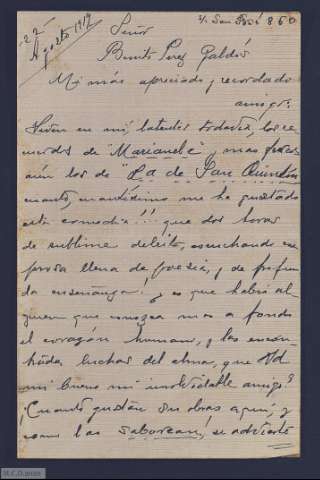 22-
Agosto 1917
s/c San José 860
Señor
Benito Perez Galdós
Mi más apreciado y recordado
amigo:
Viven en mí, latentes todavía, los re-
cuerdos de "Marianela", y mas frescos
aún los de "La de San Quintín
cuanto, cuantísimo me ha gustado
esta comedia!! que dos horas
de sublime deleite, escuchando esa
prosa llena de poesia, y de profun
da enseñanza! ¿y es que habrá al-
guien que conozca mas a fondo
el corazón humano, y las encon-
tradas luchas del alma, que Vd
mi bueno mi inolvidable amigo?
¡Cuanto gustan sus obras aquí, y
como las saborean! se advierte